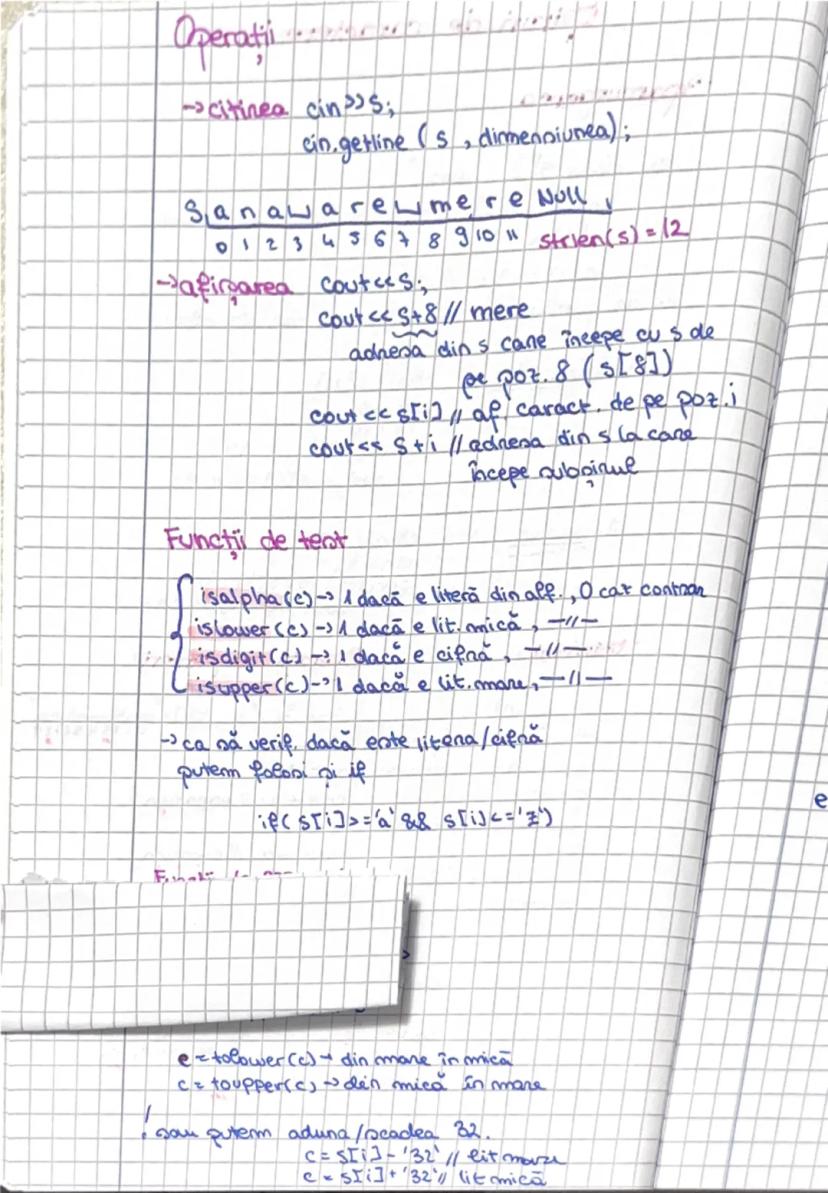 Operații
→ citirea cin>>s;
cin.getline (s, dimensiunea);
s a n a ␣ a r e ␣ m e r e Null
0 1 2 3 4 5 6 7 8 9 10 11 strlen(s) = 12
→ afișarea cout<<s;
cout<< s+8 // mere
adresa din s care începe cu s de
pe poz. 8 (s[8])
cout<<s[i] // af. caract. de pe poz. i
cout<< s+i // adresa din s la care
începe subșirul
Funcții de test
isalpha(c) → 1 dacă e literă din alf., 0 caz contrar
islower(c) → 1 dacă e lit. mică, —//—
isdigit(c) → 1 dacă e cifră, —//—
isupper(c) → 1 dacă e lit. mare, —//—
→ ca să verif. dacă este litera/cifră
putem folosi și if
if( s[i]>='a' && s[i]<='z')
c = tolower(c) → din mare în mică
c = toupper(c) → din mică în mare
! sau putem aduna/scadea 32.
c = s[i] - '32' // lit mare
c = s[i] + '32' // lit mică
e